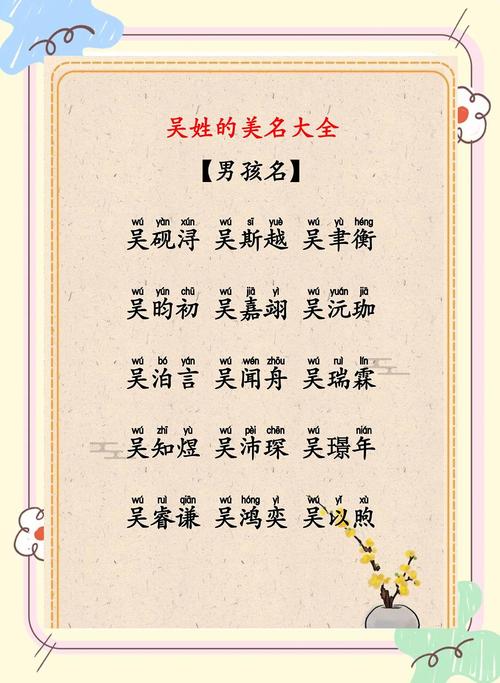 吴姓的美名大全
【男孩名】
wú yàn xún wú sī yuè wú yù héng
吴砚浔 吴斯越 吴聿衡
wú yún chū wú jiā yì wú yuán jiā
吴昀初 吴嘉翊 吴沅珈
wú bó yán wú wén zhōu wú ruì lín
吴泊言 吴闻舟 吴瑞霖
wú zhī yù wú pèi chēn wú nián
吴知煜 吴沛琛 吴璟年
wú ruì qiān wú hóng yì wú yǐ xù
吴睿谦 吴鸿奕 吴以煦